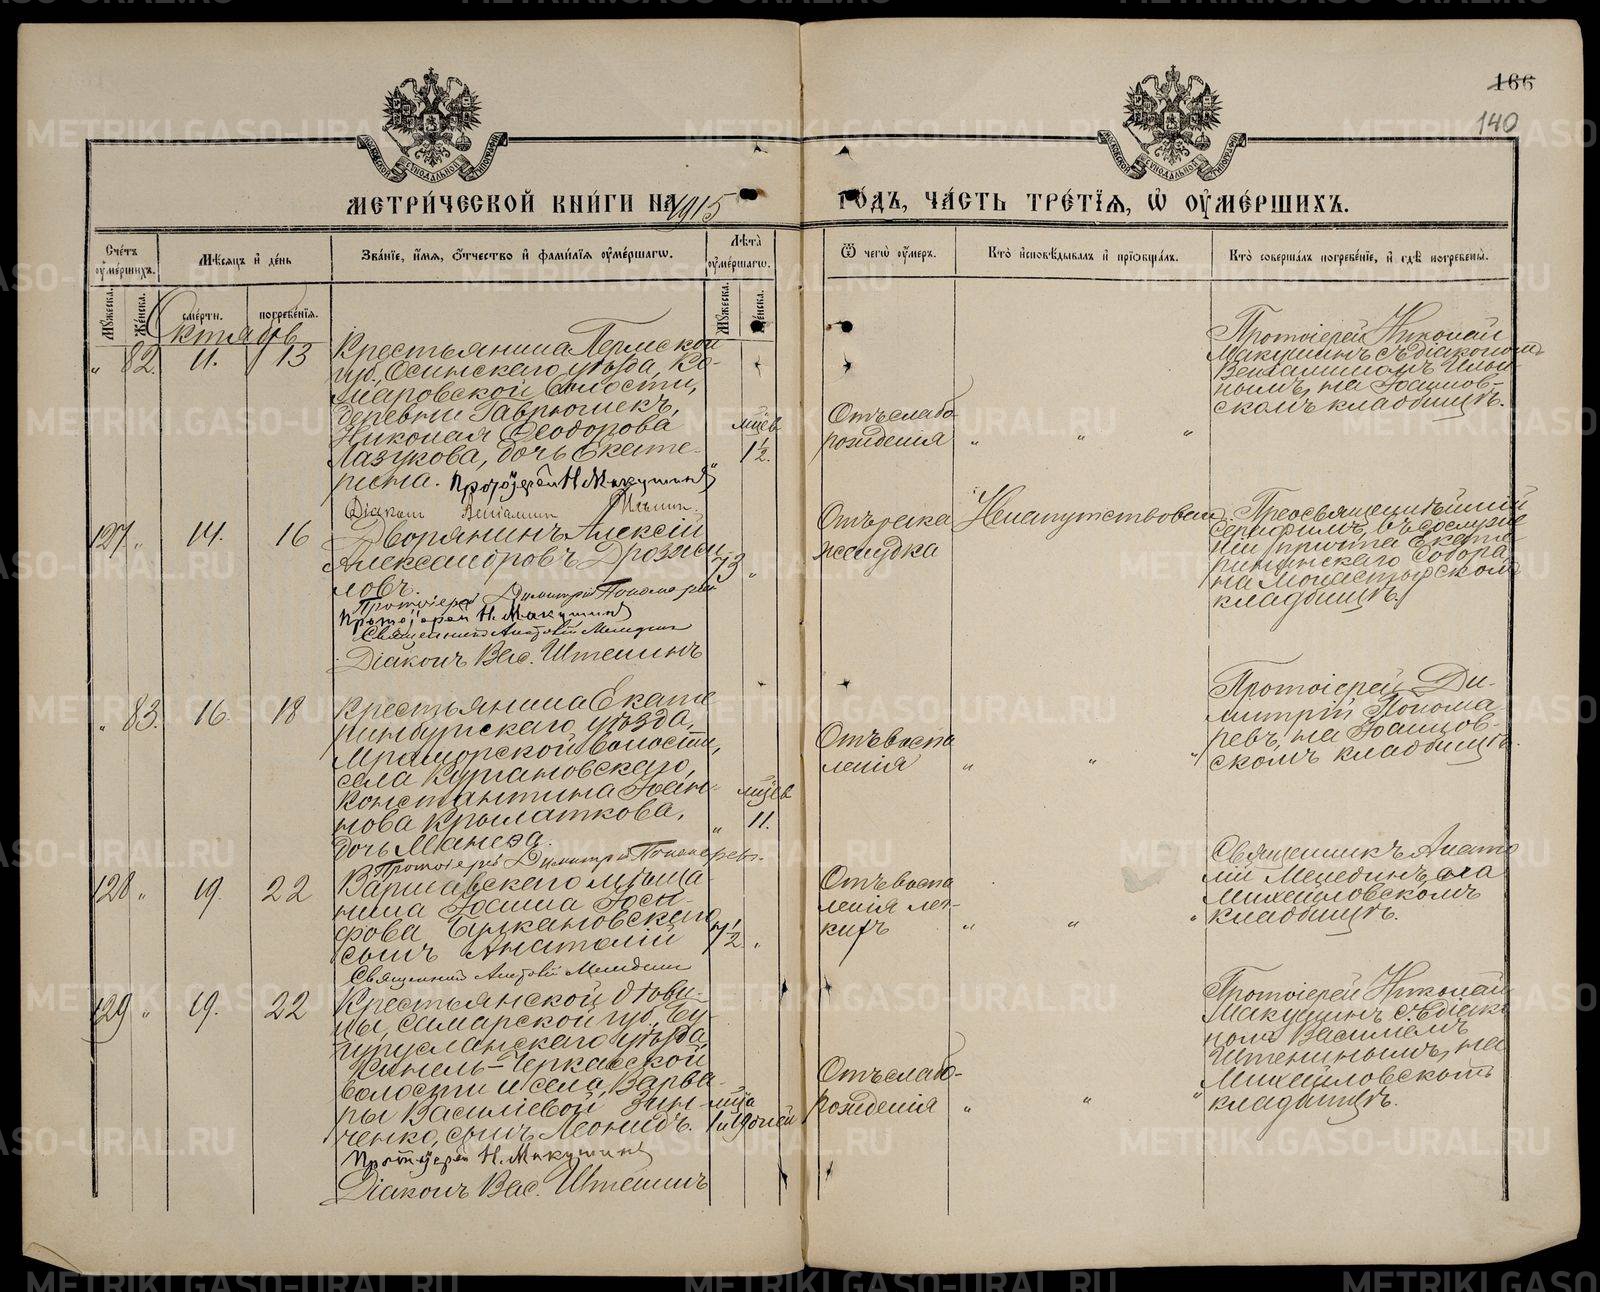 166
140
МЕТРИ́ЧЕСКОЙ КНИ́ГИ НА 1915 ГО́ДЪ, ЧА́СТЬ ТРЕ́ТІѦ, Ѽ ОУМЕ́РШИХЪ.
Сче́тъ оуме́ршихъ.
Мѣ́сѧцъ и де́нь
Зва́нїе, и́мѧ, о́тчество и фами́лїѧ оуме́ршагѡ.
Лѣ́та оуме́ршагѡ.
Ѿ чегѡ̀ оу́меръ.
Кто̀ исповѣ́дывалъ и прїѡбща́лъ.
Кто̀ соверша́лъ погребе́нїе, и гдѣ̀ погребены̀.
Мꙋ́жеска.
Же́нска.
сме́рти.
погребе́нїѧ.
Мꙋ́жеска.
Же́нска.
Октябрь
„ 82. 11. 13
Крестьянина Пермской
губ., Осинскаго уѣзда, Ко-
маровской волости,
деревни Гаврюшекъ,
Николая Ѳеодорова
Лазукова, дочь Екате-
рина. Протоіерей Н. Макушинъ
Діаконъ Веніаминъ Ильинъ.
мѣсяцев
1½.
Отъ слабо
рожденія
„ „ „
Протоіерей Николай
Макушинъ съ діакономъ
Веніаминомъ Ильи-
нымъ, на Іоаннов-
скомъ кладбищѣ.
127 „ 14. 16
Дворянинъ Алексій
Александровъ Дрозжи
ловъ.
Протоіерей Димитрій Пономаревъ
Протоіерей Н. Макушинъ
Священникъ Анатолій Мещедин
Діаконъ Вас. Штенинъ
73 „
Отъ рака
желудка
Ненапутствованъ
Преосвященнѣйшій
Серафимъ, въ сослуже
ніи причта Екате
рининскаго Собора
на Монастырскомъ
кладбищѣ.
„ 83. 16. 18
Крестьянина Екате-
ринбургскаго уѣзда,
Мраморской волости,
села Кургановскаго,
Константина Іоан-
нова Крылаткова,
дочь Манефа.
Протоіерей Димитрій Пономаревъ.
мѣсяцев
„ 11.
Отъ воспа
ленія
„ „ „
Протоіерей Ди-
митрій Понома
ревъ, на Іоаннов-
скомъ кладбищѣ.
128 „ 19. 22
Варшавскаго мѣща-
нина Іоанна Іоси-
фова Булкановскаго
сынъ Анатолій
Священникъ Анатолій Мещедин
7½ „
Отъ воспа
ленія лег-
кихъ
„ „ „
Священникъ Анато
лій Мещединъ, на
Михайловскомъ
кладбищѣ.
129 „ 19. 22
Крестьянской дѣви-
цы, Самарской губ. Бу-
гурусланскаго уѣзда,
Кинель-Черкасской
волости и села, Варва-
ры Василіевой Зин-
ченко, сынъ Леонидъ.
Протоіерей Н. Макушинъ
Діаконъ Вас. Штенинъ
мѣсяца
1 и 19 дней
Отъ слабо-
рожденія
„ „ „
Протоіерей Николай
Макушинъ съ діако
номъ Василіемъ
Штенинымъ, на
Михайловскомъ
кладбищѣ.
METRIKI.GASO-URAL.RU